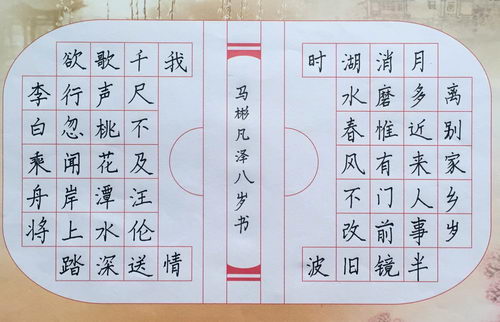 离别家乡岁
月多近来人事半
消磨惟有门前镜
湖水春风不改旧
时波
马彬凡泽八岁书
李白乘舟将
欲行忽闻岸上踏
歌声桃花潭水深
千尺不及汪伦送
我情